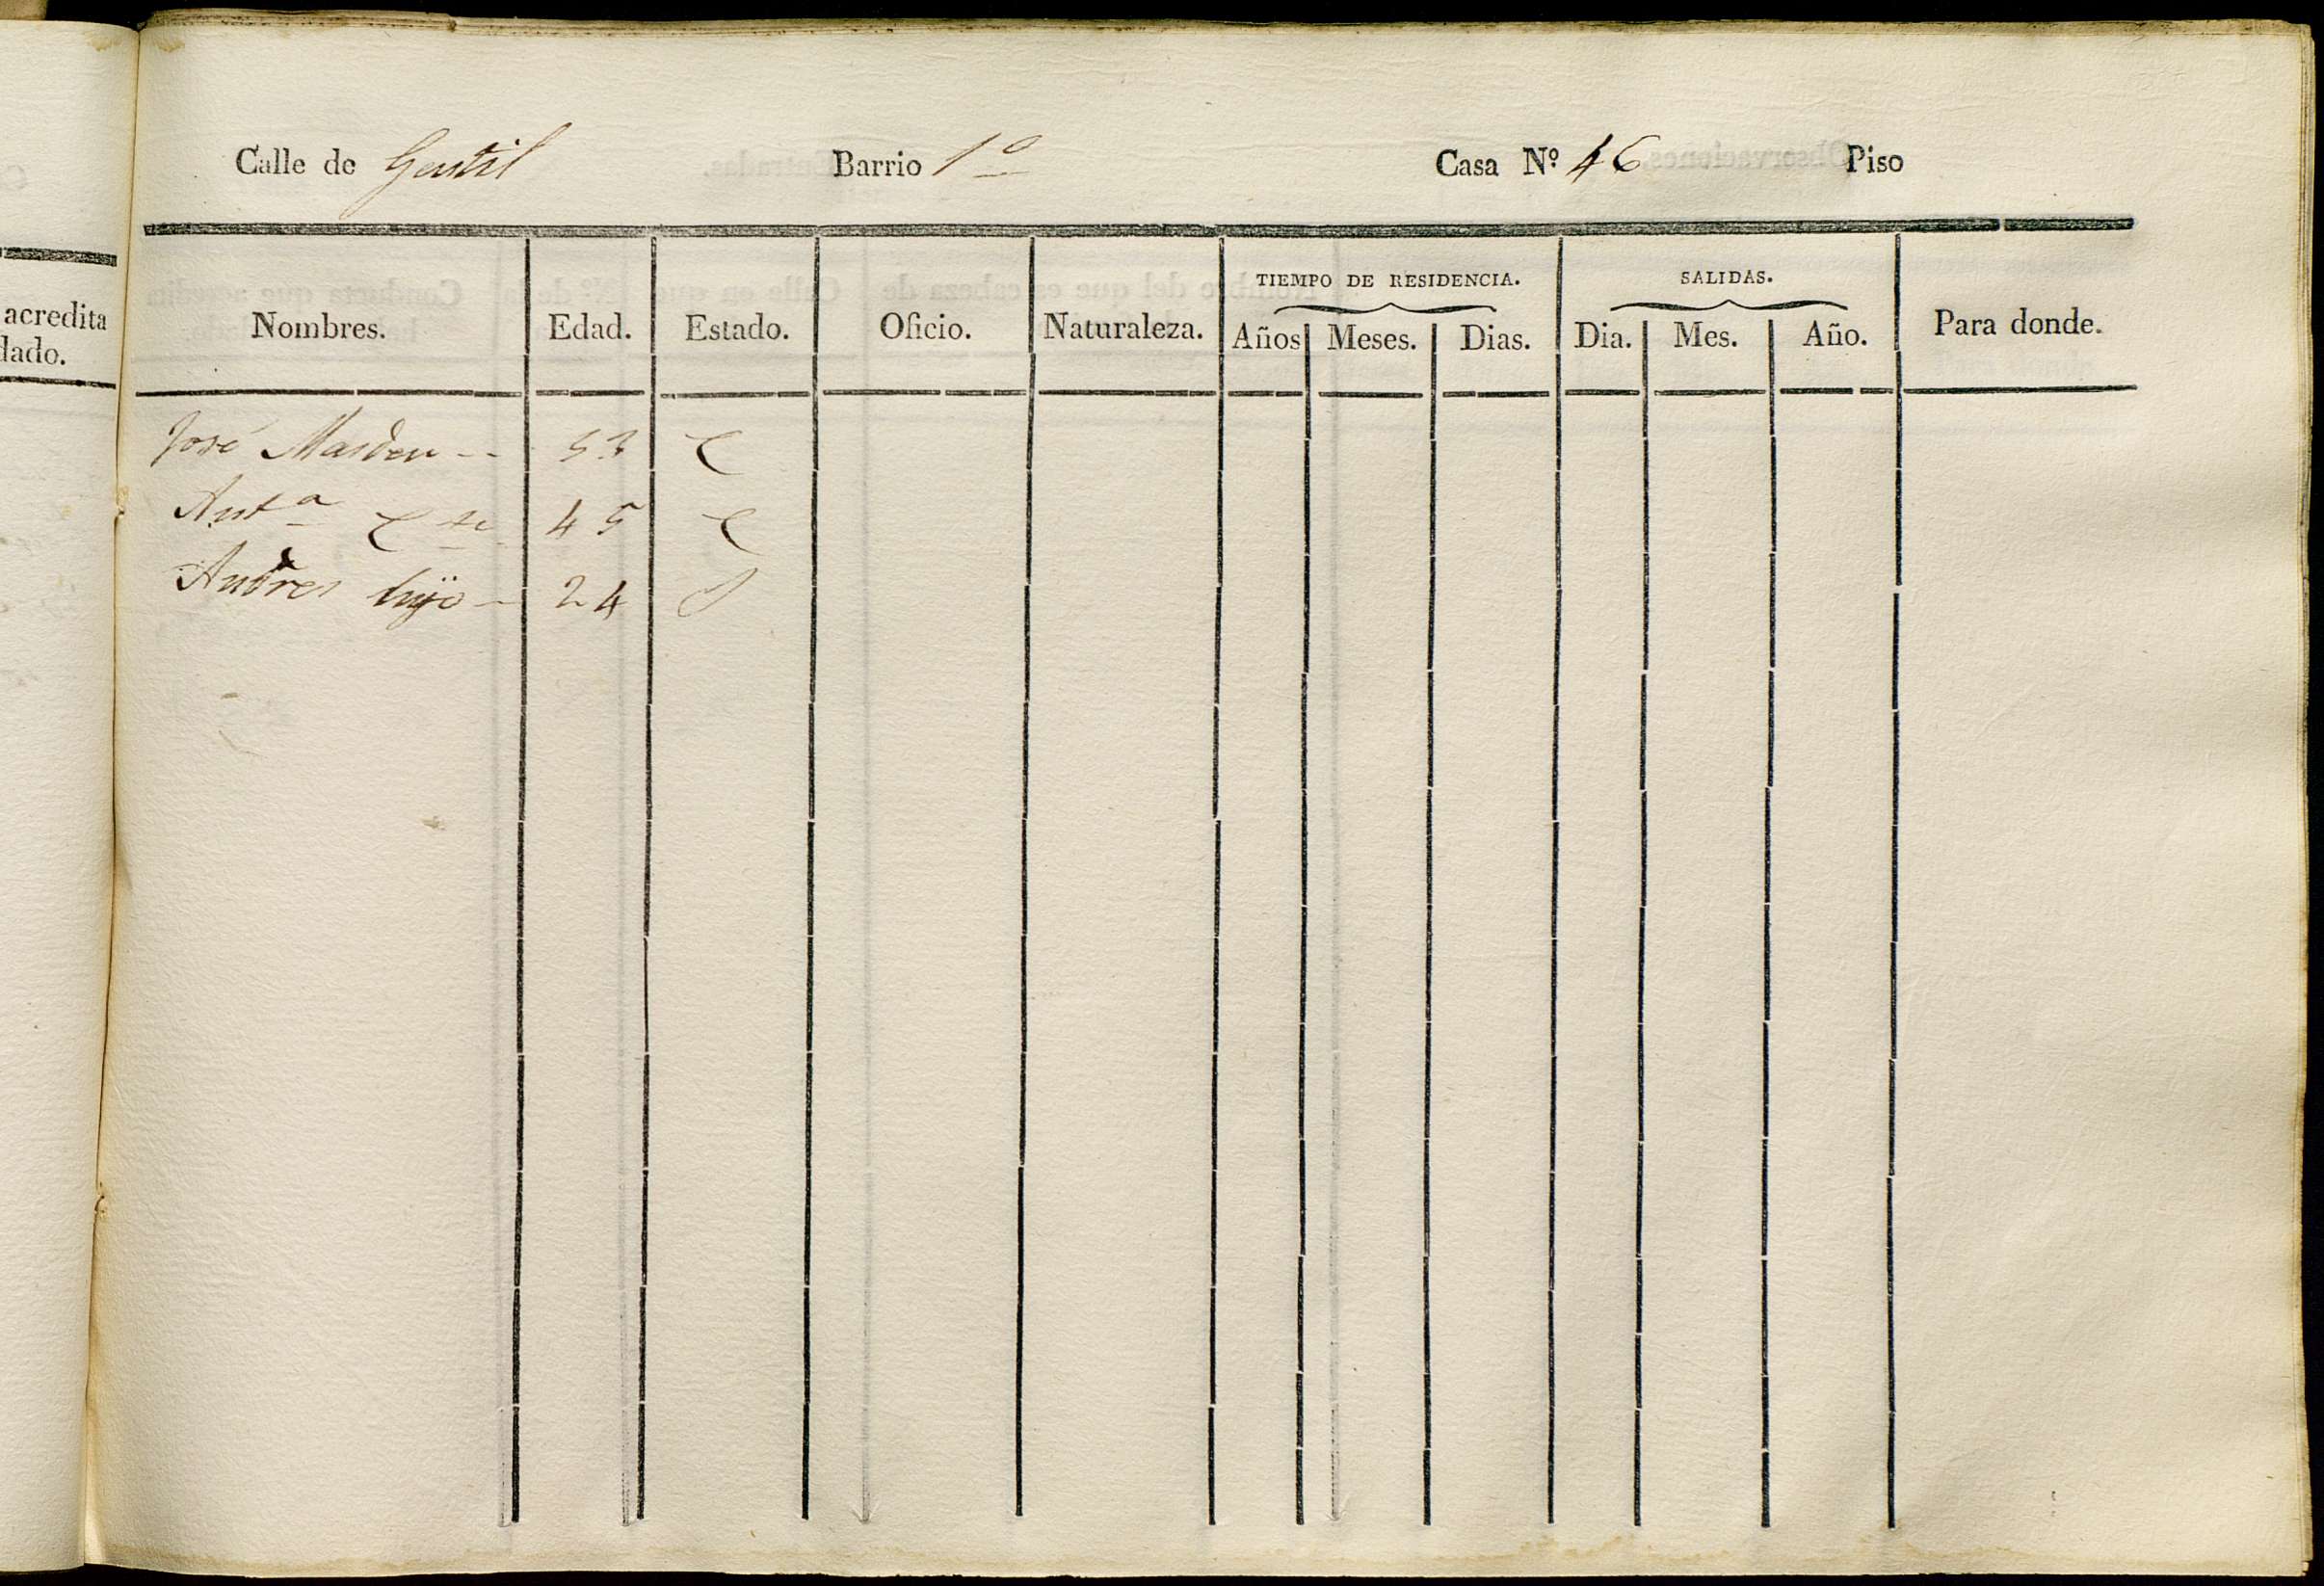 acredita
dado.
Calle de Gentil Barrio 1º Casa Nº 46 Piso
TIEMPO DE RESIDENCIA. SALIDAS.
Nombres. Edad. Estado. Oficio. Naturaleza. Años Meses. Dias. Dia. Mes. Año. Para donde.
José Masdeu -- 53 C
Antª C te 45 C
Andres hijo - 24 S